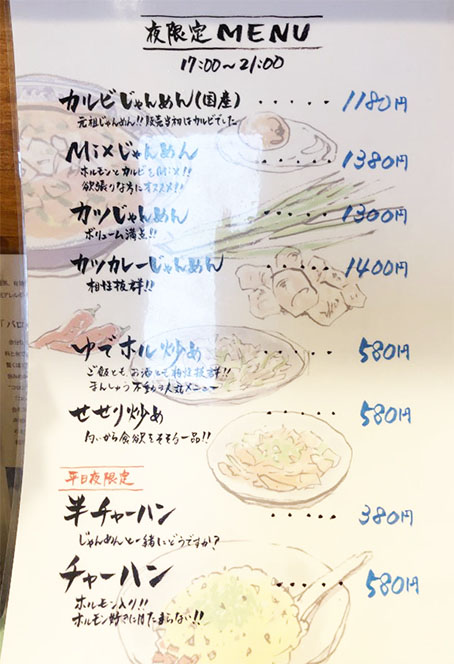 夜限定 MENU
17:00～21:00
カルビじゃんめん(国産) ‥‥‥ 1180円
元祖じゃんめん!! 販売当初はカルビでした
Mixじゃんめん ‥‥‥ 1380円
ホルモンとカルビをMix!!
欲張りな方にオススメ!!
カツじゃんめん ‥‥‥ 1300円
ボリューム満点!!
カツカレーじゃんめん ‥‥‥ 1400円
相性抜群!!
ゆでホル炒め ‥‥‥ 580円
ご飯とも お酒とも相性抜群!!
まんしゅう 不動の人気メニュー
せせり炒め ‥‥‥ 580円
匂いから食欲をそそる一品!!
平日夜限定
半チャーハン ‥‥‥ 380円
じゃんめんと一緒にどうですか?
チャーハン ‥‥‥ 580円
ホルモン入り!!
ホルモン好きにはたまらない!!